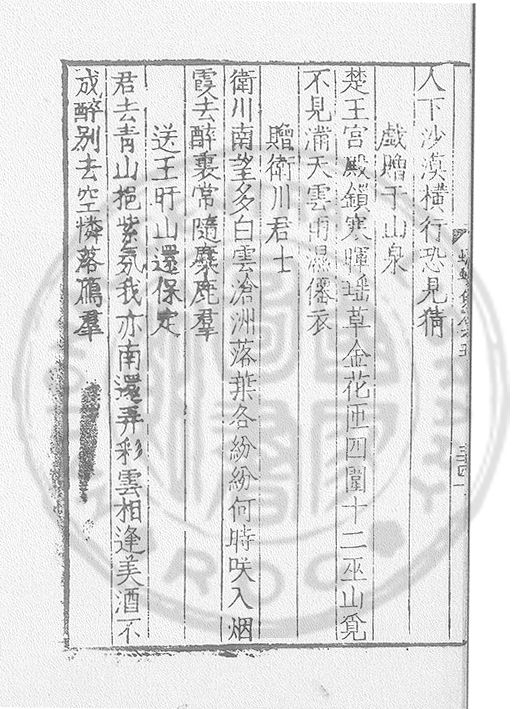 人下沙漠橫行恐見猜
戲贈于山泉
楚王宮殿鎖寒暉瑶草金花匝四圍十二巫山覓
不見滿天雲雨濕僊衣
贈衛川君士
衛川南望多白雲滄洲落葉各紛紛何時咲入烟
霞去醉裏常隨麋鹿羣
送王盱山還保定
君去青山挹紫氛我亦南還弄彩雲相逢美酒不
成醉別去空憐落鴈羣